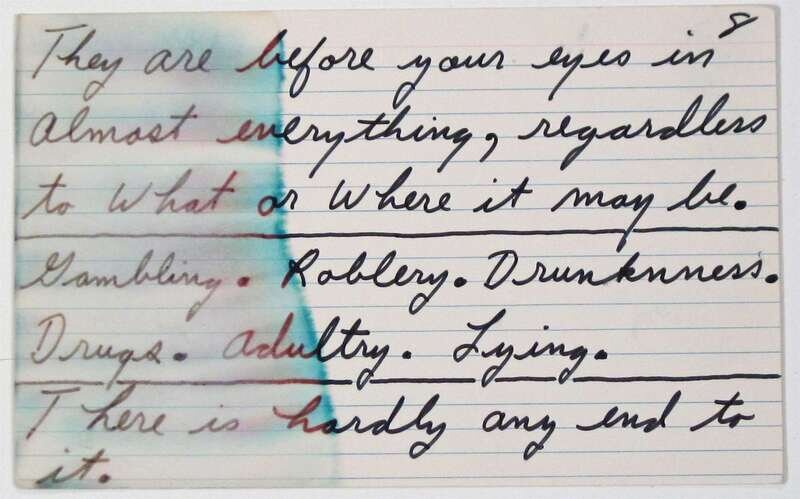 8
They are before your eyes in
almost everything, regardless
to What or Where it may be.
Gambling. Robbery. Drunknness.
Drugs. Adultry. Lying.
There is hardly any end to
it.